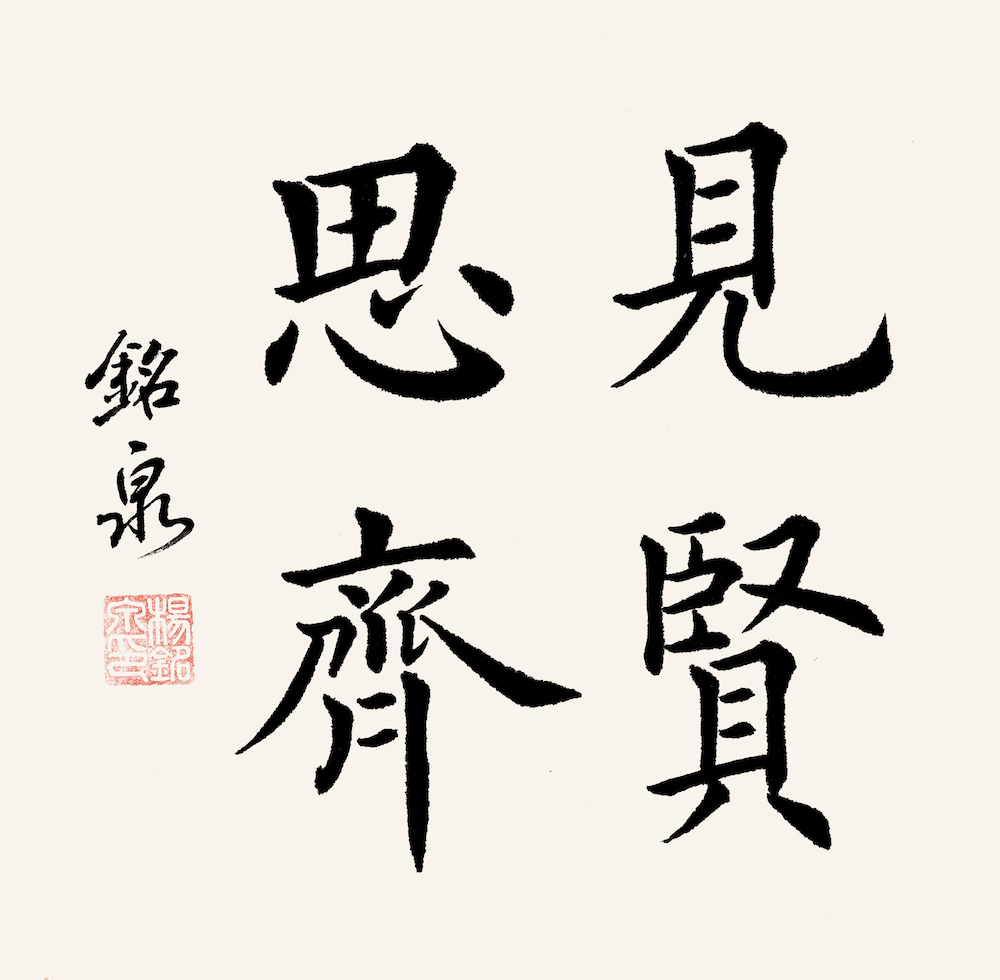 見賢
思齊
銘泉
楊銘
泉印